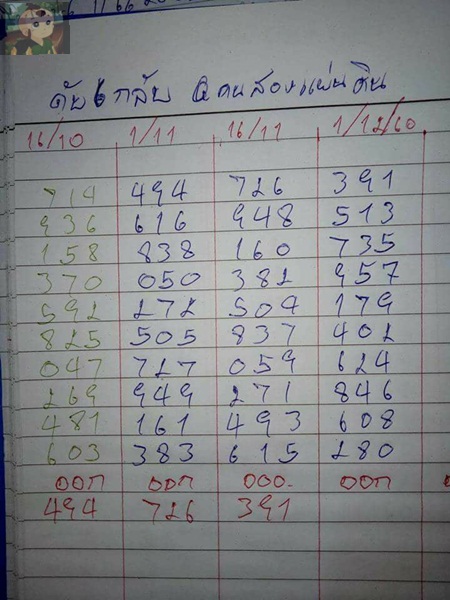 ดับ 6 กลับ @ คนสองแผ่นดิน
16/10 1/11 16/11 1/12/60
714 494 726 391
936 616 948 513
158 838 160 735
370 050 382 957
592 272 504 179
825 505 837 402
047 727 059 624
269 949 271 846
481 161 493 608
603 383 615 280
ออก ออก ออก. ออก
494 726 391